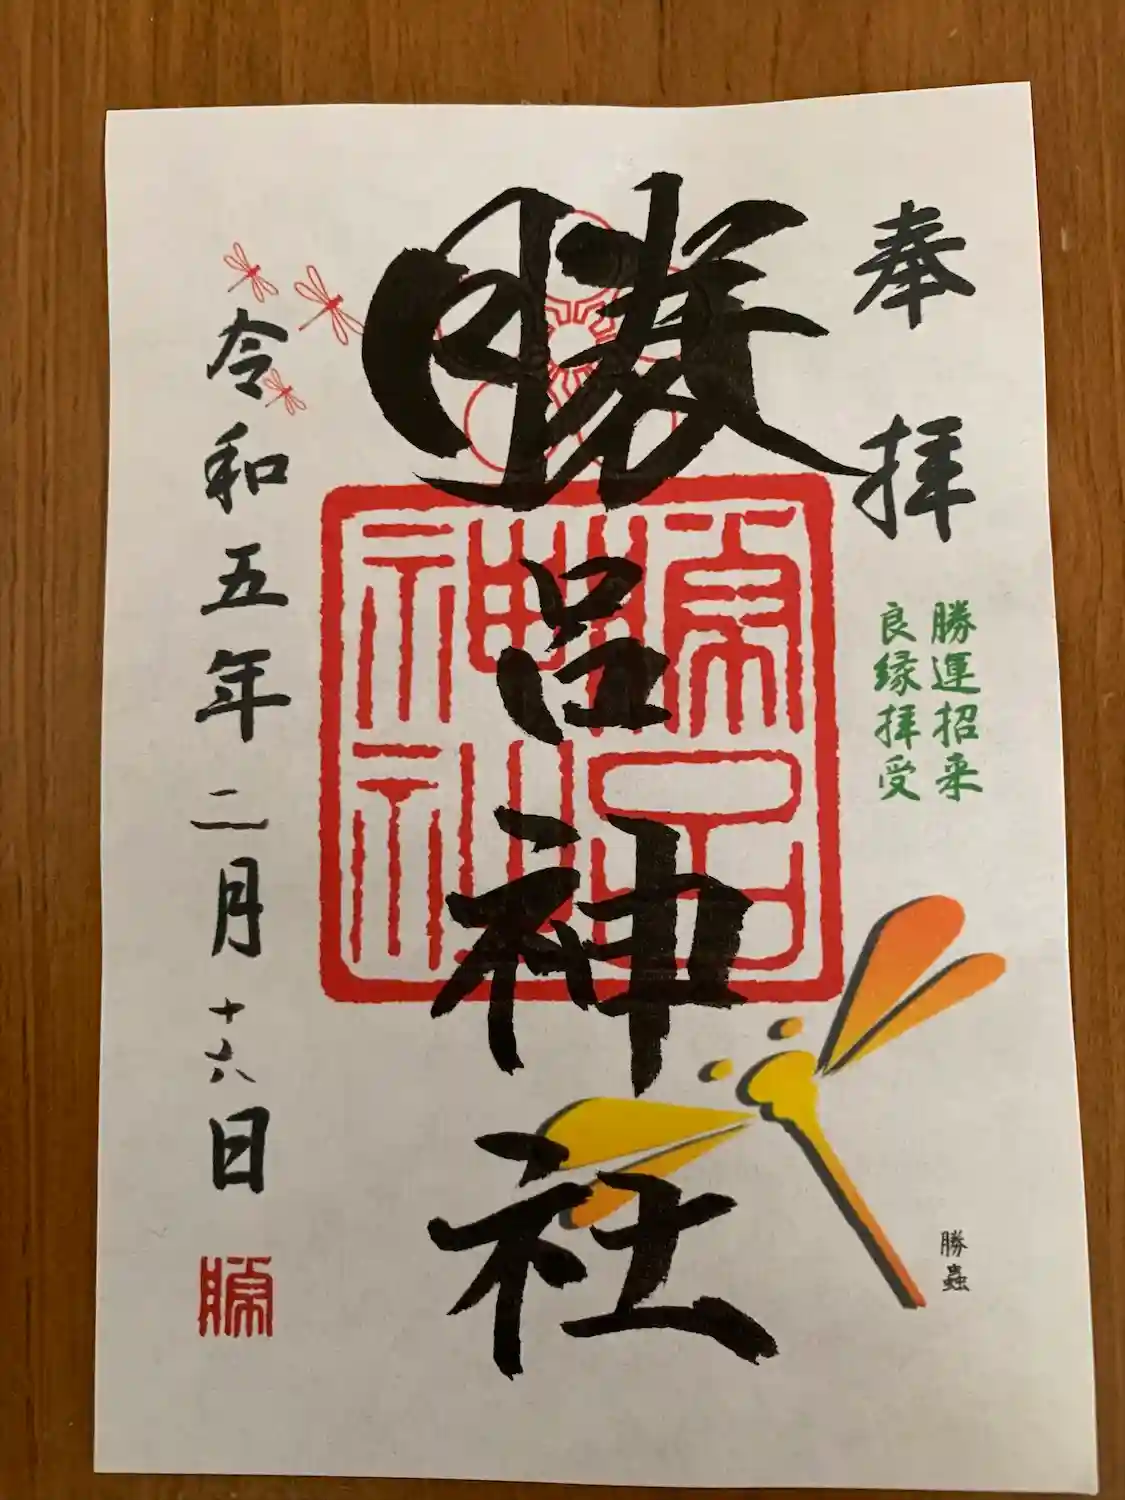 奉拝
勝運招来
良縁拝受
勝蟲
勝呂神社
勝呂
神社
令和五年二月十六日
勝